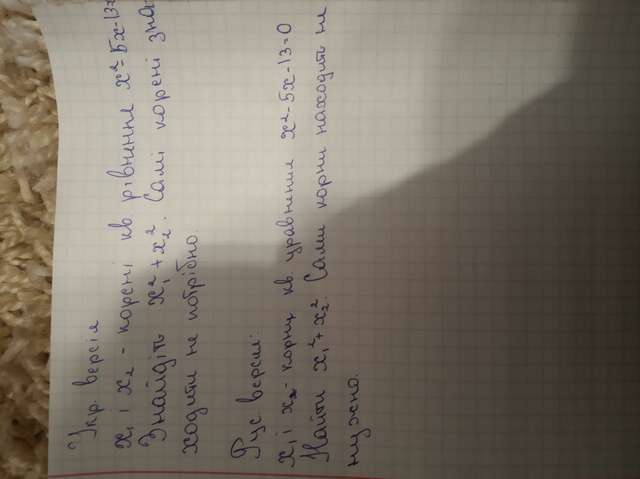 Укр. версія
x₁ і x₂ - корені кв рівняння x² - 5x - 13 =
Знайдіть x₁² + x₂². Самі корені зна-
ходити не потрібно.
Рус версия:
x₁ і x₂ - корни кв. уравнения x² - 5x - 13 = 0
Найти x₁² + x₂². Сами корни находить не
нужно.